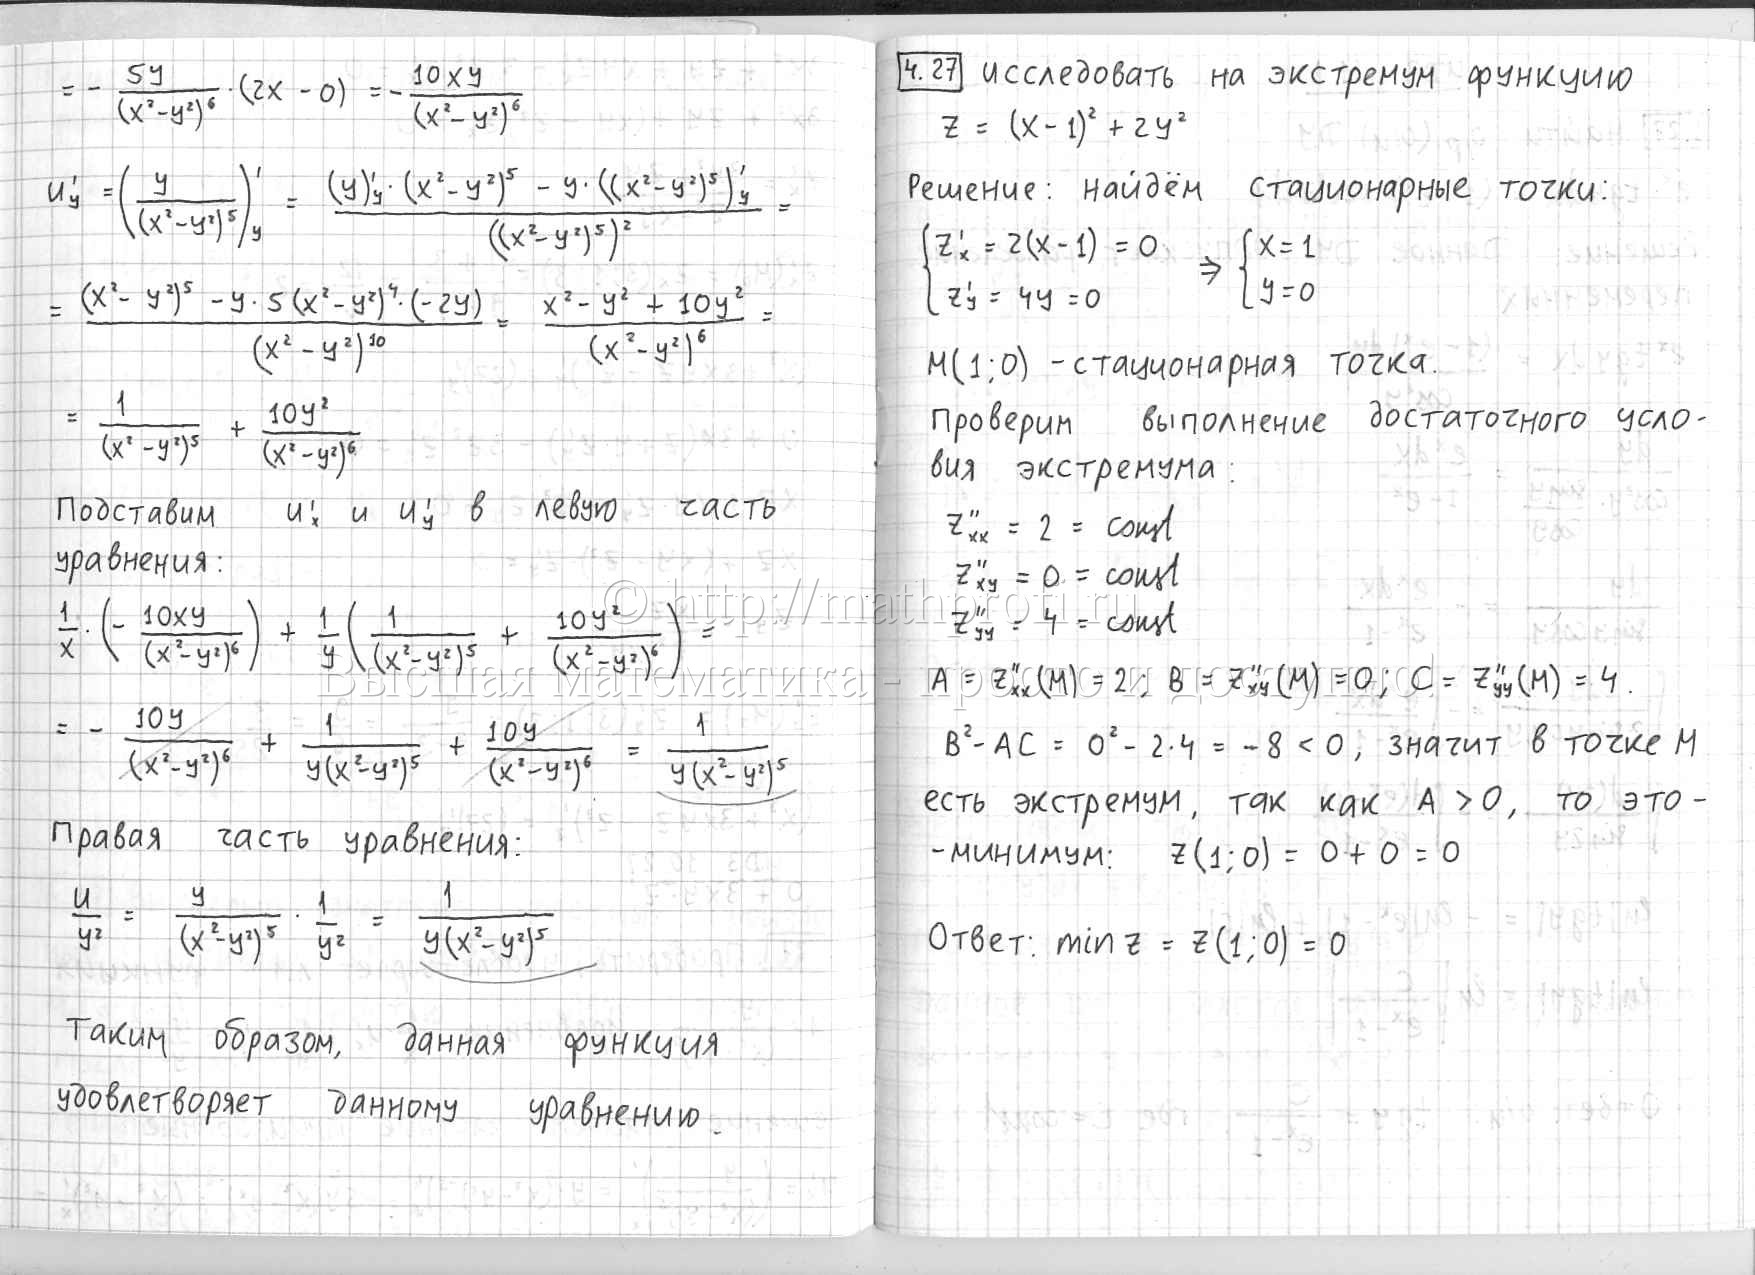 = - 5y/(x²-y²)⁶ · (2x - 0) = - 10xy/(x²-y²)⁶
u'y = (y/(x²-y²)⁵)'y = ((y)'y · (x²-y²)⁵ - y · ((x²-y²)⁵)'y)/((x²-y²)⁵)² =
= ((x²-y²)⁵ - y · 5(x²-y²)⁴ · (-2y))/(x²-y²)¹⁰ = (x²-y²+10y²)/(x²-y²)⁶ =
= 1/(x²-y²)⁵ + 10y²/(x²-y²)⁶
Подставим u'x и u'y в левую часть
уравнения:
1/x · (- 10xy/(x²-y²)⁶) + 1/y (1/(x²-y²)⁵ + 10y²/(x²-y²)⁶) =
= - 10y/(x²-y²)⁶ + 1/(y(x²-y²)⁵) + 10y/(x²-y²)⁶ = 1/(y(x²-y²)⁵)
Правая часть уравнения:
u/y² = y/(x²-y²)⁵ · 1/y² = 1/(y(x²-y²)⁵)
Таким образом, данная функция
удовлетворяет данному уравнению.
4.27 исследовать на экстремум функцию
z = (x-1)² + 2y²
Решение: найдём стационарные точки:
{ z'x = 2(x-1) = 0 ⇒ { x=1
{ z'y = 4y = 0 { y=0
M(1;0) - стационарная точка.
Проверим выполнение достаточного усло-
вия экстремума:
z''xx = 2 = const
z''xy = 0 = const
z''yy = 4 = const
A = z''xx(M) = 2; B = z''xy(M) = 0; C = z''yy(M) = 4.
B² - AC = 0² - 2·4 = -8 < 0, значит в точке M
есть экстремум, так как A > 0, то это-
-минимум: z(1;0) = 0 + 0 = 0
Ответ: min z = z(1;0) = 0
© http://mathprofi.ru
Высшая математика - просто и доступно!